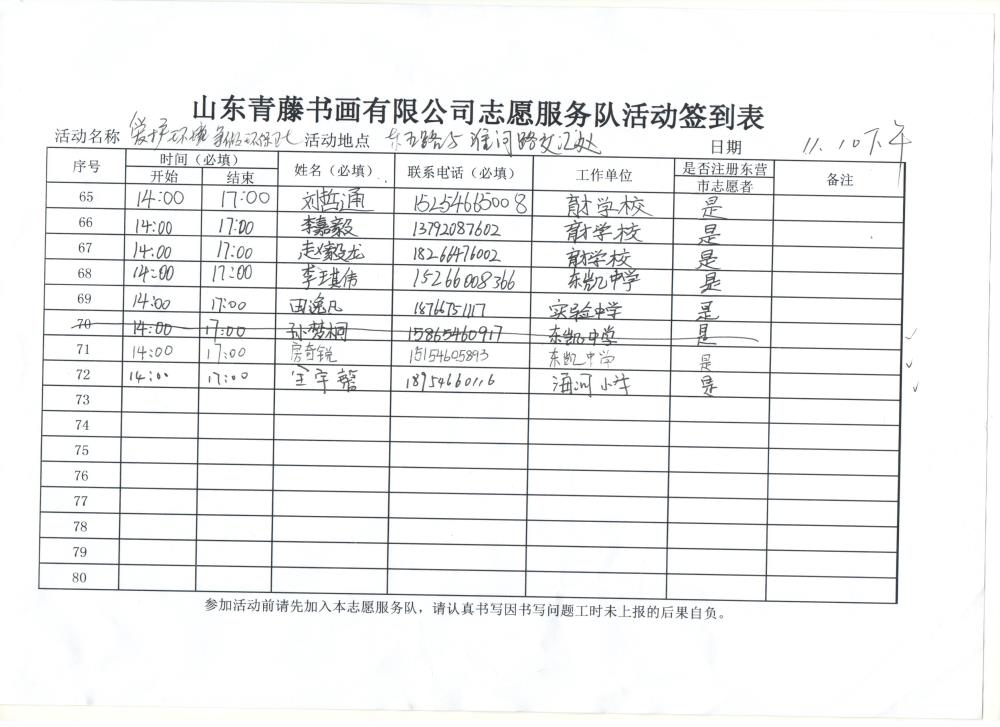 山东青藤书画有限公司志愿服务队活动签到表
活动名称 爱护环境 争做环保卫士 活动地点 东五路与淮河路交汇处 日期 11.10下午
序号 时间（必填） 姓名（必填） 联系电话（必填） 工作单位 是否注册东营市志愿者 备注
开始 结束
65 14:00 17:00 刘哲通 15254665008 育才学校 是
66 14:00 17:00 李嘉毅 13792087602 育才学校 是
67 14:00 17:00 赵毅龙 18266476002 育才学校 是
68 14:00 17:00 李琪伟 15266008366 东凯中学 是
69 14:00 17:00 田逸凡 18766751117 实验中学 是
70 14:00 17:00 孙梦桐 15865460917 东凯中学 是
71 14:00 17:00 房奇锐 15154605893 东凯中学 是
72 14:00 17:00 宇 18954660116 海河小学 是
73
74
75
76
77
78
79
80
参加活动前请先加入本志愿服务队，请认真书写因书写问题工时未上报的后果自负。